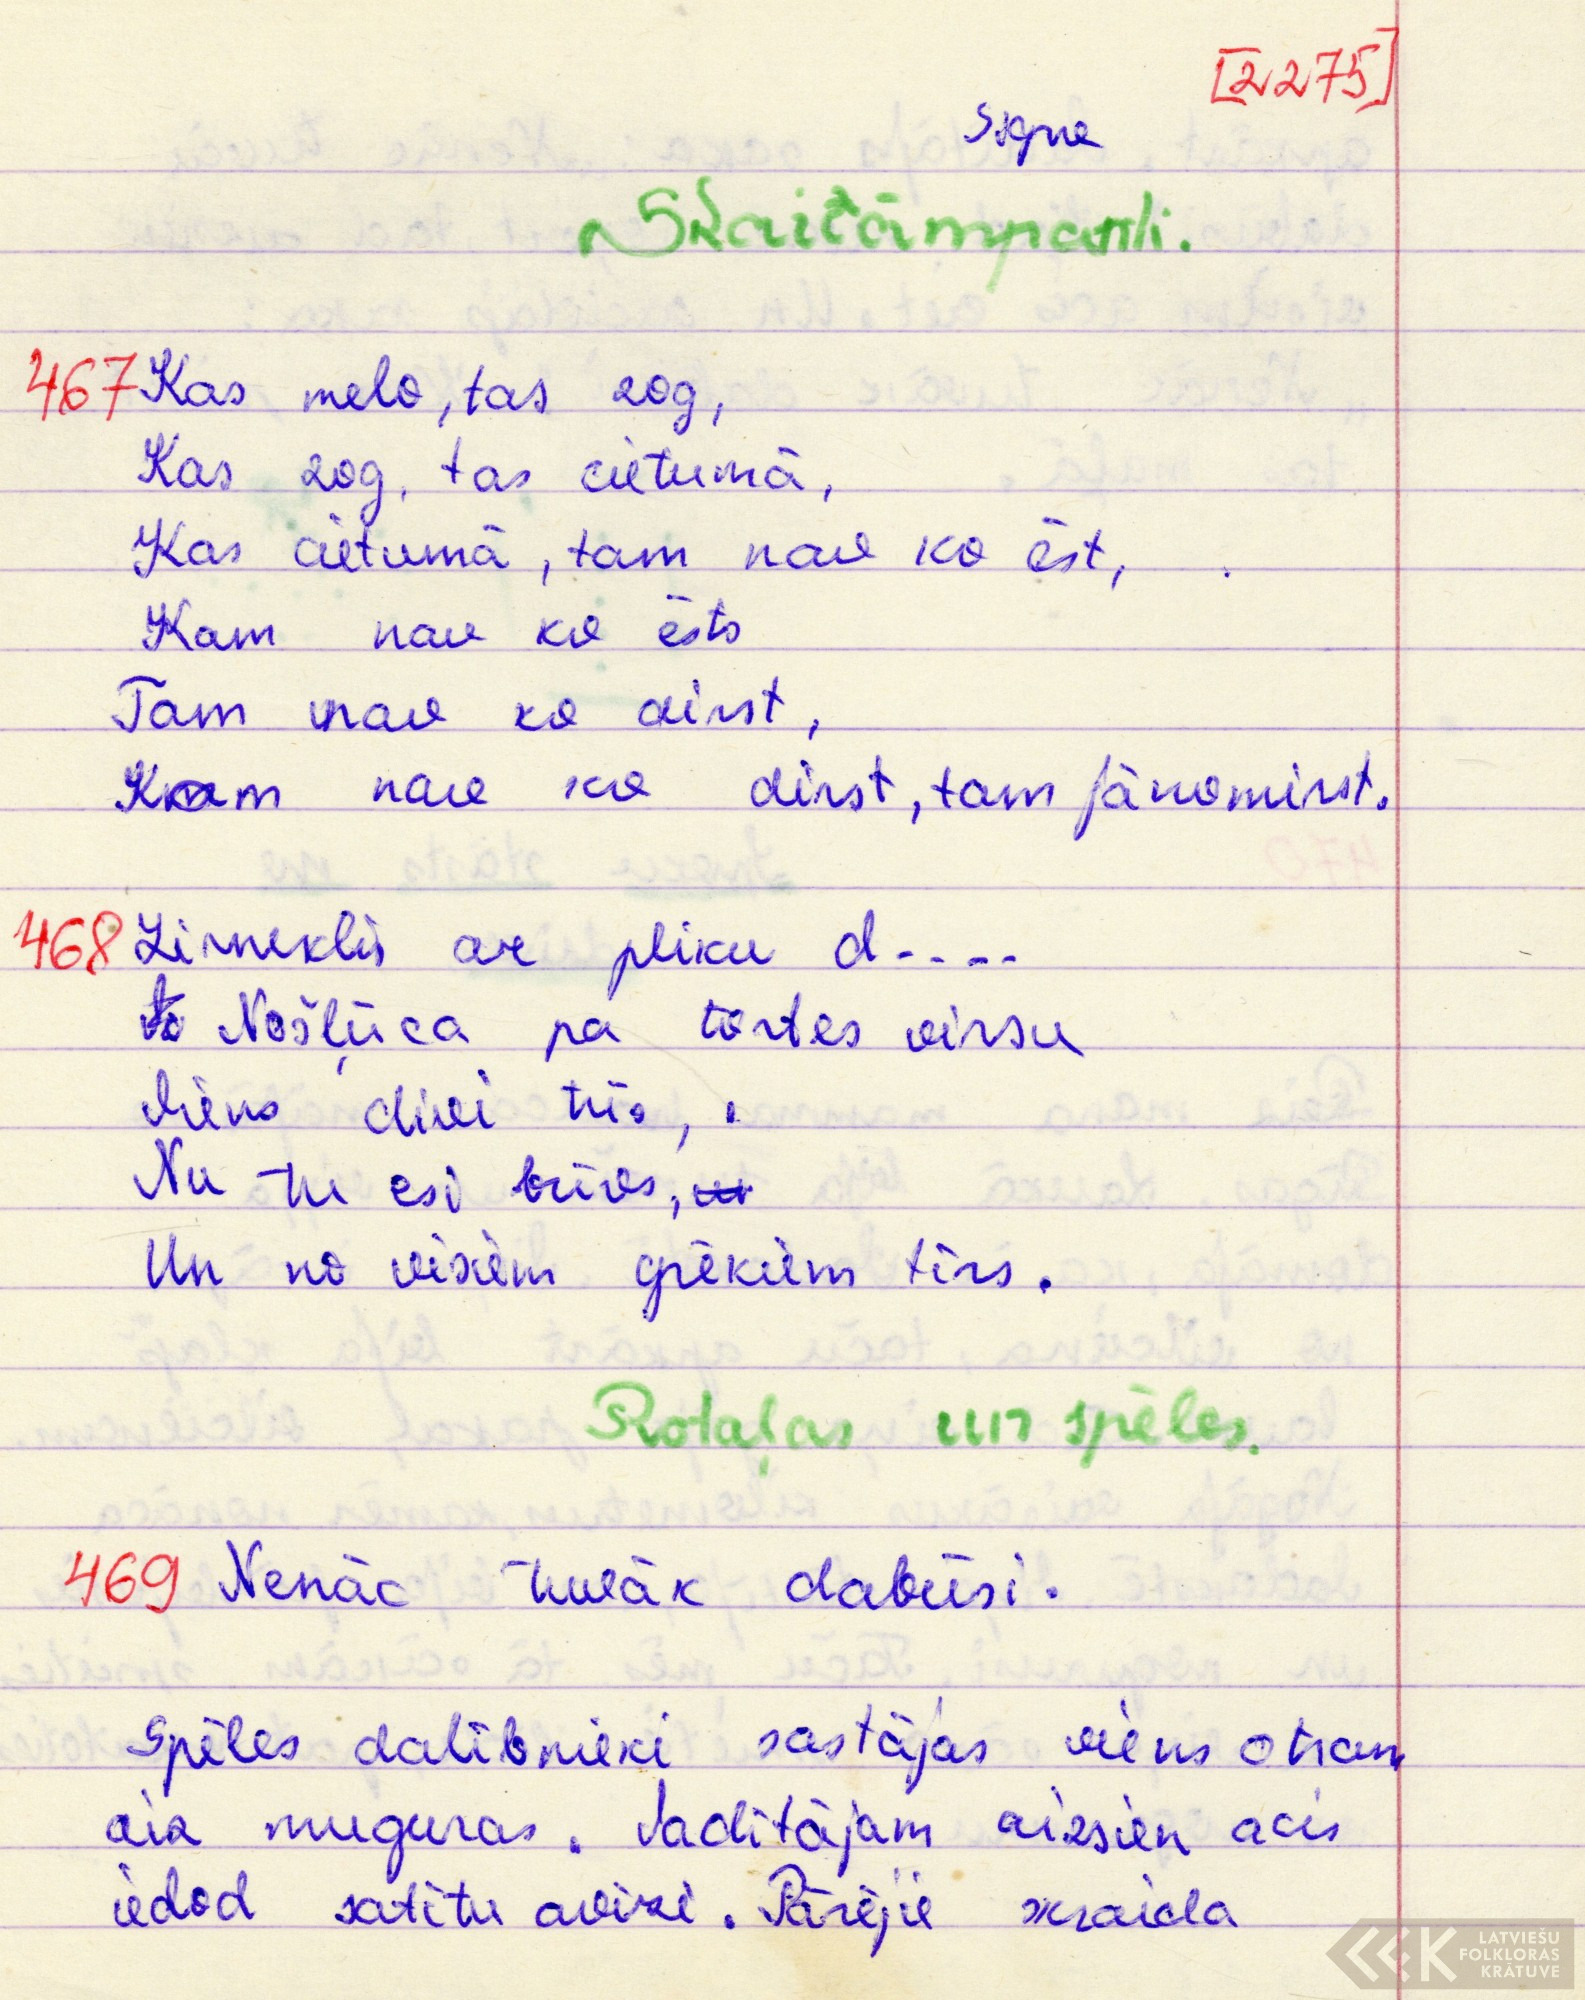 [2275]
Signe
Skaitāmpanti.
467 Kas melo, tas zog,
Kas zog, tas cietumā,
Kas cietumā, tam nav ko ēst,
Kam nav ko ēst
Tam nav ko dirst,
Kam nav ko dirst, tam jānomirst.
468 Zirneklis ar pliku d----
Nošļūca pa tortes virsu
Viens divi trīs,
Nu tu esi brīvs,
Un no visiem grēkiem tīrs.
Rotaļas un spēles.
469 Nenāc tuvāk dabūsi.
Spēles dalībnieki sastājas viens otram
aiz muguras. Vadītājam aizsien acis
iedod satītu avīzi. Pārējie skraida
LATVIEŠU
FOLKLORAS
KRĀTUVE